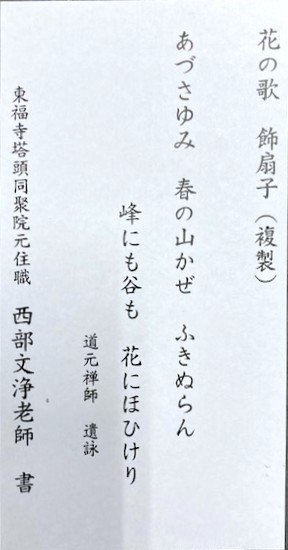 花の歌　飾扇子（複製）
あづさゆみ　春の山かぜ　ふきぬらん
峰にも谷も　花にほひけり
道元禅師　遺詠
東福寺塔頭同聚院元住職　西部文浄老師　書